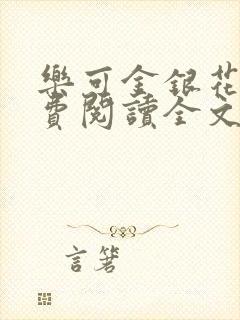 樂可金銀花
費閱讀全文
言箸